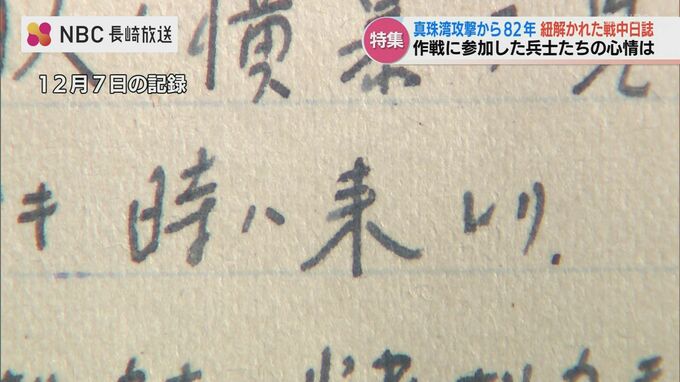 NBC 長崎放送
特集
真珠湾攻撃から82年 紐解かれた戦中日誌
作戦に参加した兵士たちの心情は
12月7日の記録
キ 時ハ来レリ.